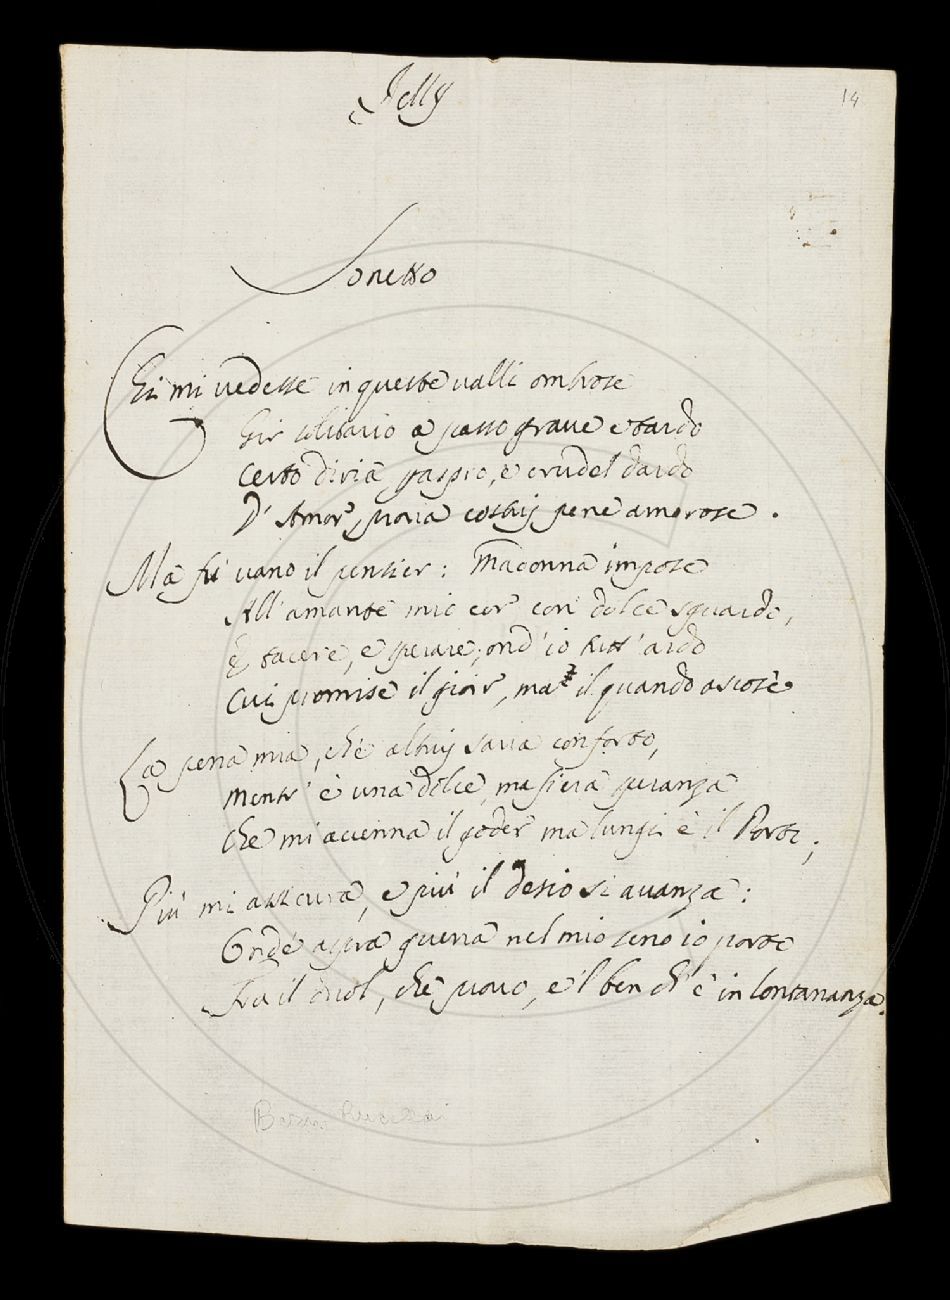 Jelly
14
Sonetto
Chi mi vedesse in queste ualli ombrose
Gir solitario a passo graue e tardo
Certo diria, ch'aspro, e crudel dardo
D'Amor, prova costui pene amorose.
Ma fu uano il pensier: Madonna impose
All'amante mio cor con dolce sguardo,
E tacere, e sperare; ond'io tutt'ardo
Cui promise il gioir, ma il quando ascose
La pena mia, che altrui saria conforto,
Mentr'è una dolce, ma fiera speranza
Che mi accenna il goder ma lungi è il Porto;
Più mi assicura, e più il desio si auanza:
Onde aspra guerra nel mio seno io porto
Fra il duol, che prouo, e'l ben ch'è in lontananza.